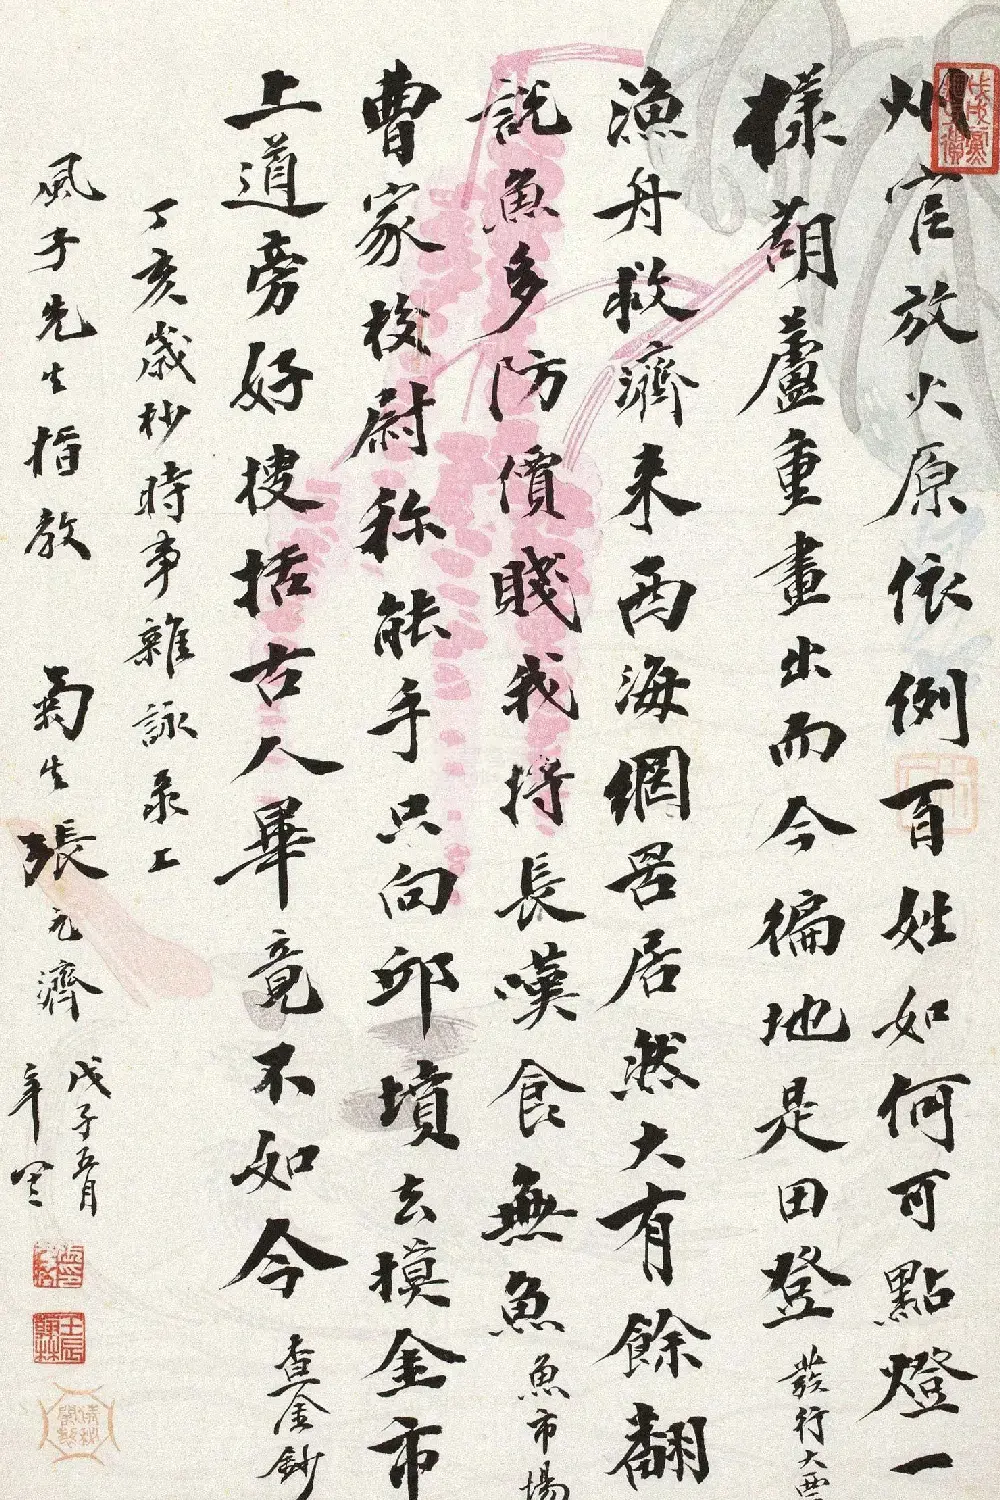 州官放火原依例百姓如何可點燈一
樣葫蘆重畫出而今徧地是田登 發行大票
漁舟救濟來西海網罟居然大有餘翻
說魚多防價賤我持長嘆食無魚 魚市場
曹家校尉称能手只向邱墳去摸金市
上道旁好搜括古人畢竟不如今 查金鈔
丁亥歲杪時事雜詠录上
風子先生指教 菊生張元濟
戊子五月
年